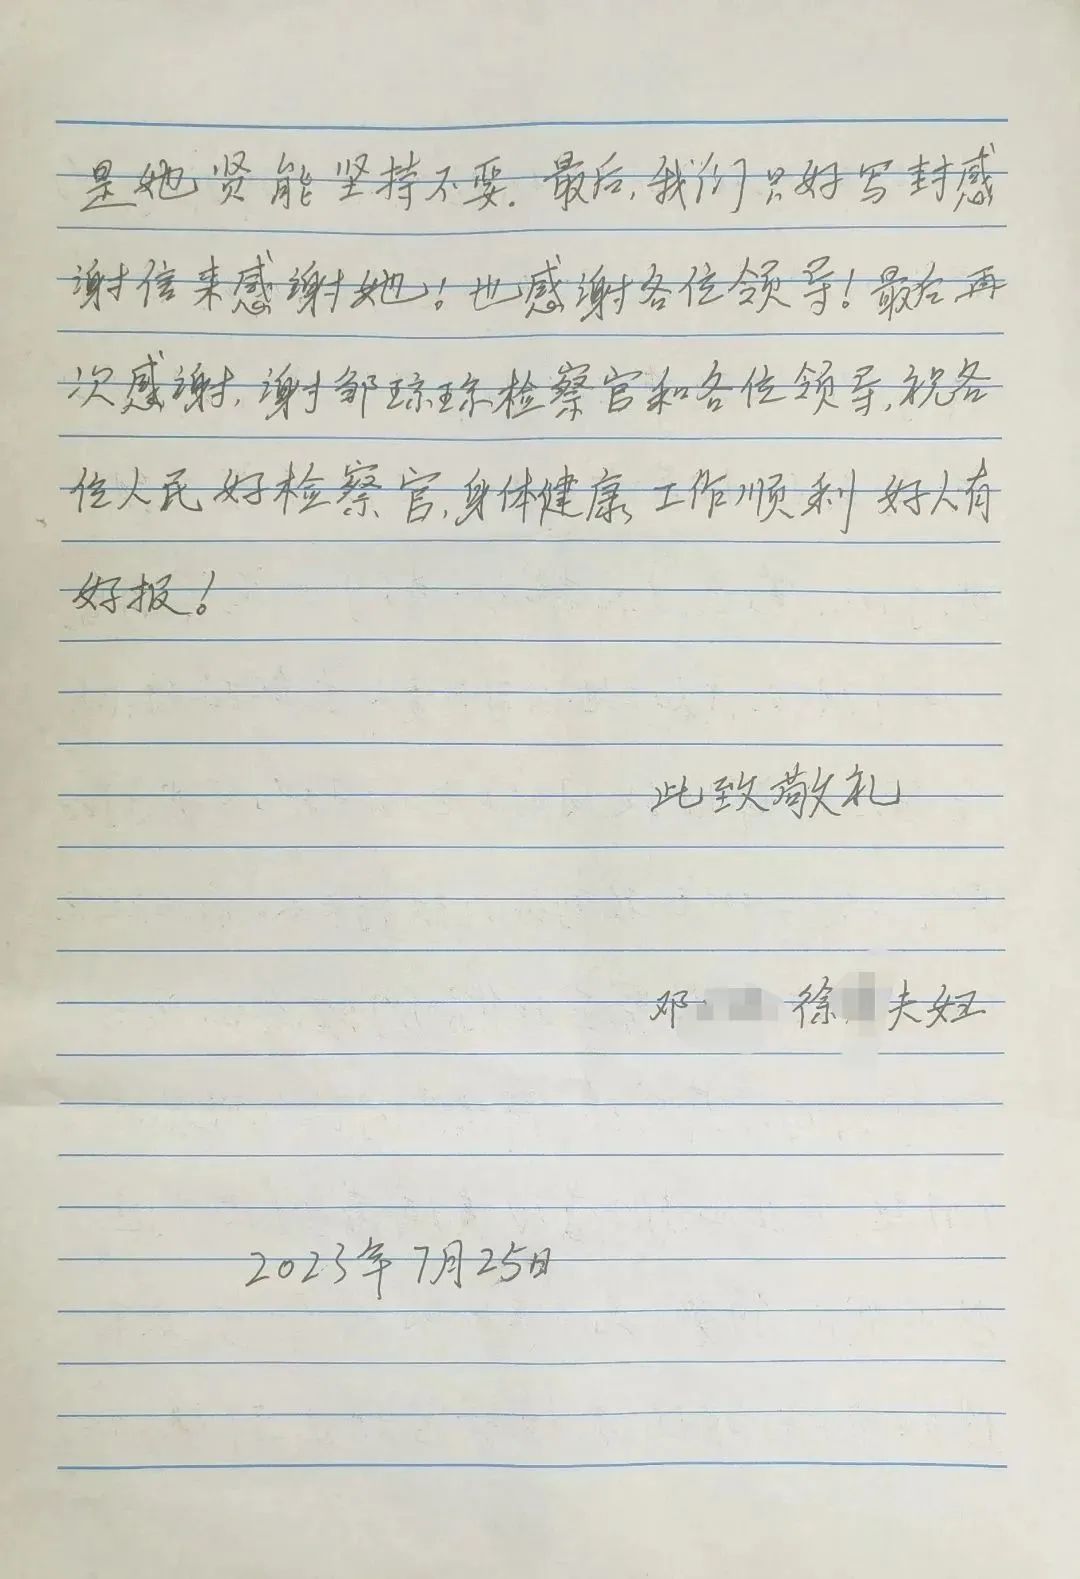 是她贤能坚持不要.最后,我们只好写封感
谢信来感谢她!也感谢各位领导!最后再
次感谢,谢邹琼琼检察官和各位领导,祝各
位人民好检察官,身体健康,工作顺利 好人有
好报!
此致敬礼
邓 徐 夫妇
2023年7月25日